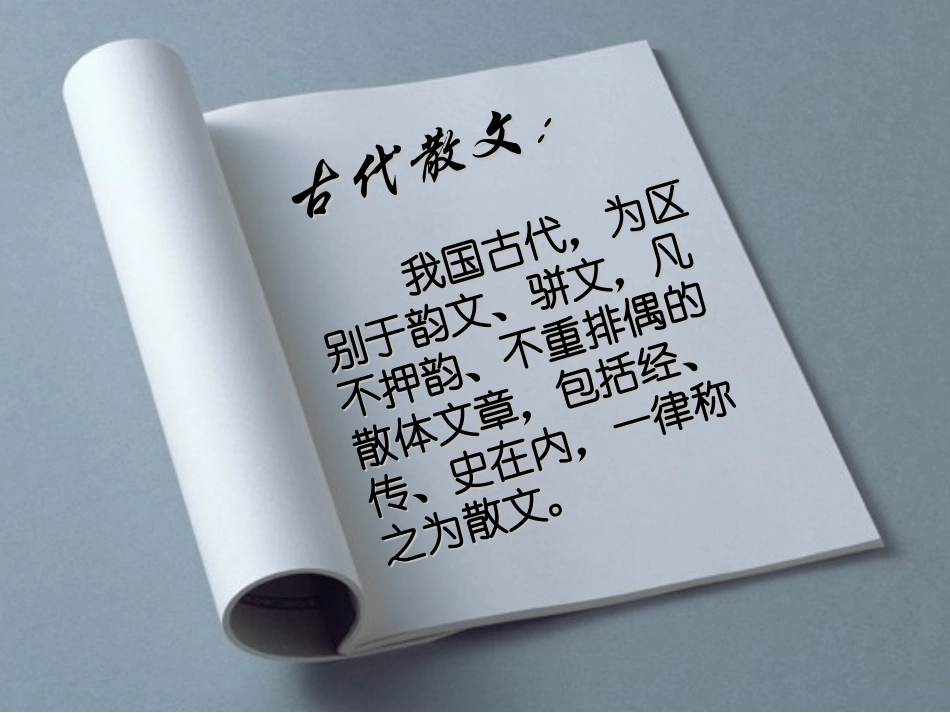 古代散文：
我国古代，为区
别于韵文、骈文，凡
不押韵、不重排偶的
散体文章，包括经、
传、史在内，一律称
之为散文。